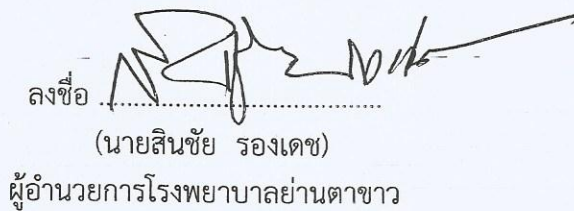 ลงชื่อ ........................................
(นายสินชัย รองเดช)
ผู้อำนวยการโรงพยาบาลย่านตาขาว